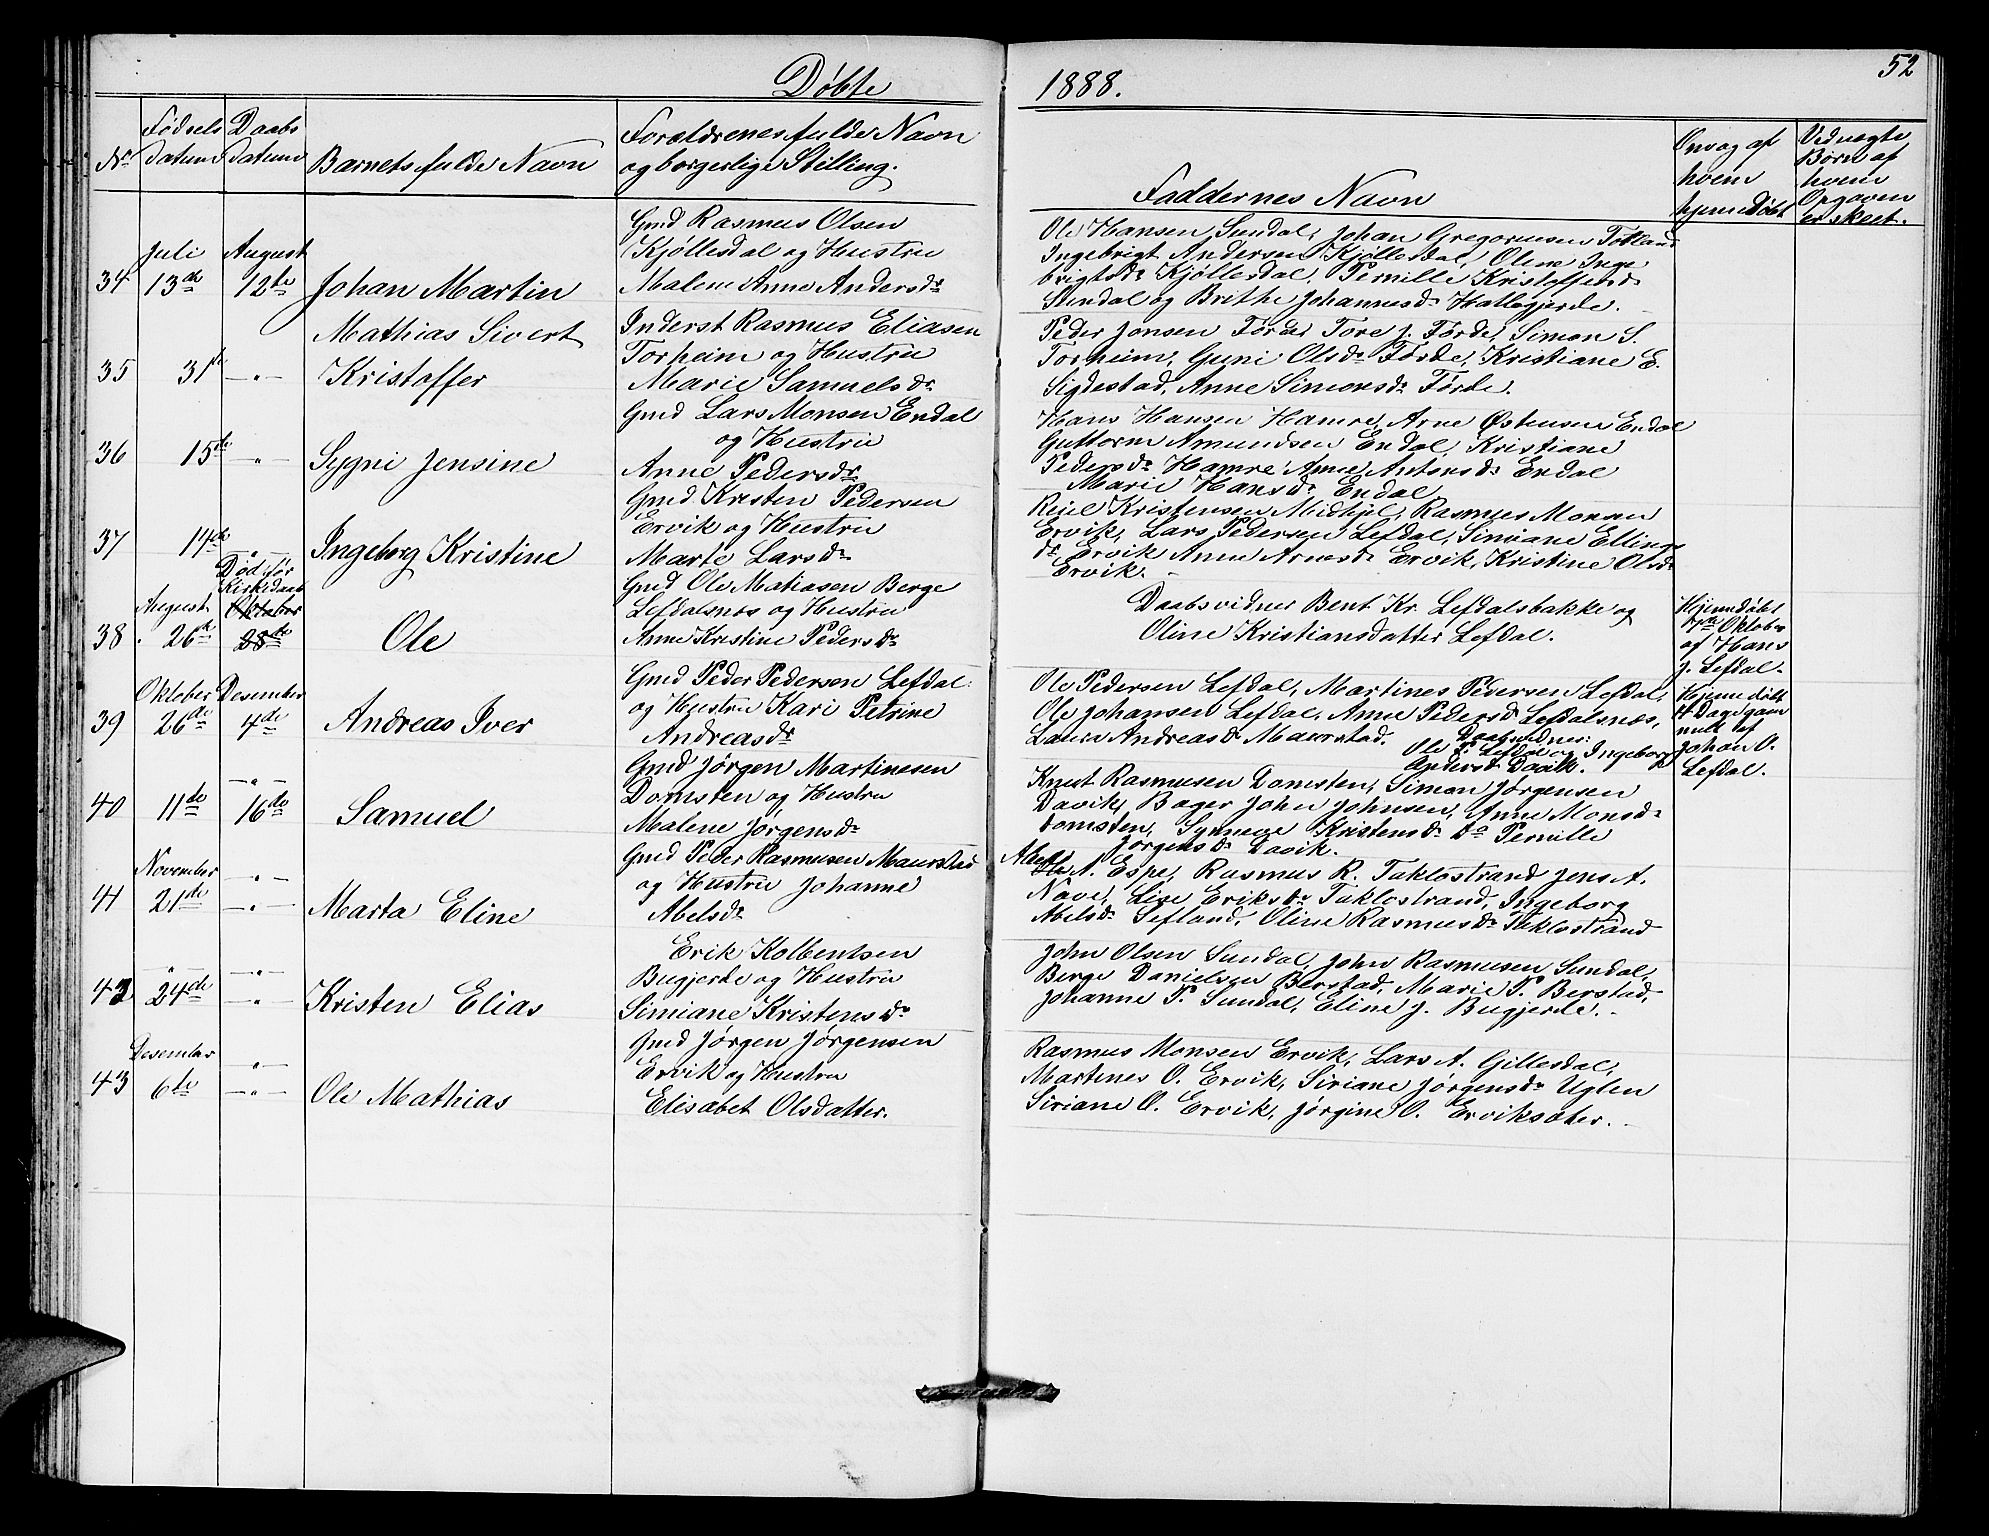 Døbte
1888.
52
No
Fødsels datum
Daabs datum
Barnets fulde Navn
Forældrenes fulde Navn
og borgerlige Stilling.
Faddernes Navn
Om og af
hvem
hjemedøbt
Veduægte
Børn af
hvem
Opgaven
er skeet.
34
Juli
13de
August
12te
Johan Martin
Gmd Rasmus Olsen
Kjøllesdal og Hustru
Malene Anne Andersdr
Ole Hansen Sundal, Johan Gregoriusen Totland
Ingebrigt Andersen Kjøllesdal, Oline Inge
brigtsdr Kjøllesdal, Pernille Kristofersdr
Sundal og Brithe Johannesdr Hallegjerde.
35
31te
-"-
Mathias Sivert
Kristoffer
Inderst Rasmus Eliasen
Torheim og Hustru
Marie Samuelsdr
Peder Jonsen Førde Tore J. Førde, Simon S.
Torheim, Guni Olsdr Førde, Kristiane E.
Sigdestad, Anne Simonsdr Førde.
36
15de
-"-
Sygni Jensine
Gmd Lars Monsen Endal
og Hustru
Anne Pedersdr
Hans Hansen Hamre, Arne Østensen Endal
Guttorm Amundsen Endal, Kristiane
Pedersdr Hamre Anne Antonsdr Endal
Marie Hansdr Endal
37
14de
-"-
Ingeborg Kristine
Gmd Kristen Pedersen
Ervik og Hustru
Marte Larsdr
Reiel Kristensen Midhjel, Rasmus Monsen
Ervik, Lars Pedersen Lefdal, Simiane Ellings
dr Ervik Anne Arnesdr Ervik, Kristine Olsdr
Ervik. -
38.
August
26de
Død før
Kirkedaab
Oktober
28de
Ole
Gmd Ole Matiasen Berge
Lefdalsnes og Hustru
Anne Kristine Pedersdr
Daabsvidner Bent Kr. Lefdalsbakke og
Oline Kristiansdatter Lefdal.
Hjemdøbt
7de Oktober
af Hans
J. Lefdal
39
Oktober
26de
Desember
4de
Andreas Iver
Gmd Peder Pedersen Lefdal
og Hustru Kari Petrine
Andreasdr
Ole Pedersen Lefdal, Martines Pedersen Lefdal,
Ole Johansen Lefdal, Anne Pedersdr Lefdalsnes,
Laura Andreasdr Maurstad. Daabsvidner:
Ole P. Lefdal og Ingeborg
Andersd. Davik.
Hjemedøbt
14 Dage gam
melt af
Johan O.
Lefdal.
40
11de
-"-
16de
Samuel
Gmd Jørgen Martinesen
Domsten og Hustru
Malene Jørgensdr
Knut Rasmusen Domsten, Simon Jørgensen
Davik, Bager John Johnsen, Anne Monsdr
Domsten, Synneve Kristensdr Do Pernille
Jørgensdr Davik.
41
November
21de
-"-
-"-
Marta Eline
Gmd Peder Rasmusen Maurstad
og Hustru Johanne
Abelsdr
Abel
Ole A. Espe, Rasmus R. Taklostrand Jens A.
Nave, Lise Eriksdr Taklostrand, Ingeborg
Abelsdr Sefland, Oline Rasmusdr Taklostrand
42
-"-
24de
-"-
-"-
Kristen Elias
Erik Kolbentsen
Bugjerde og Hustru
Simiane Kristensdr
John Olsen Sundal, John Rasmusen Sundal,
Berge Danielsen Berstad, Marie P. Berstad,
Johanne P. Sundal, Eline J. Bugjerde. -
43
Desember
6te
-"-
-"-
Ole Mathias
Gmd Jørgen Jørgensen
Ervik og Hustru
Elisabet Olsdatter.
Rasmus Monsen Ervik, Lars A. Gillesdal,
Martines O. Ervik, Siriane Jørgensdr Uglen
Siriane O. Ervik, Jørgine O. Erviksæter. -